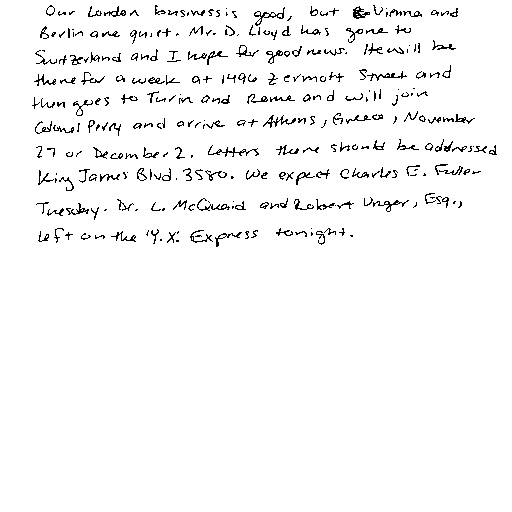 Our London business is good, but Vienna and
Berlin are quiet. Mr. D. Lloyd has gone to
Switzerland and I hope for good news. He will be
there for a week at 1496 Zermott Street and
then goes to Turin and Rome and will join
Colonel Perry and arrive at Athens, Greece, November
27 or December 2. Letters there should be addressed
King James Blvd. 3580. We expect Charles E. Fuller
Tuesday. Dr. L. McQuaid and Robert Unger, Esq.,
left on the 'Y.X.' Express tonight.